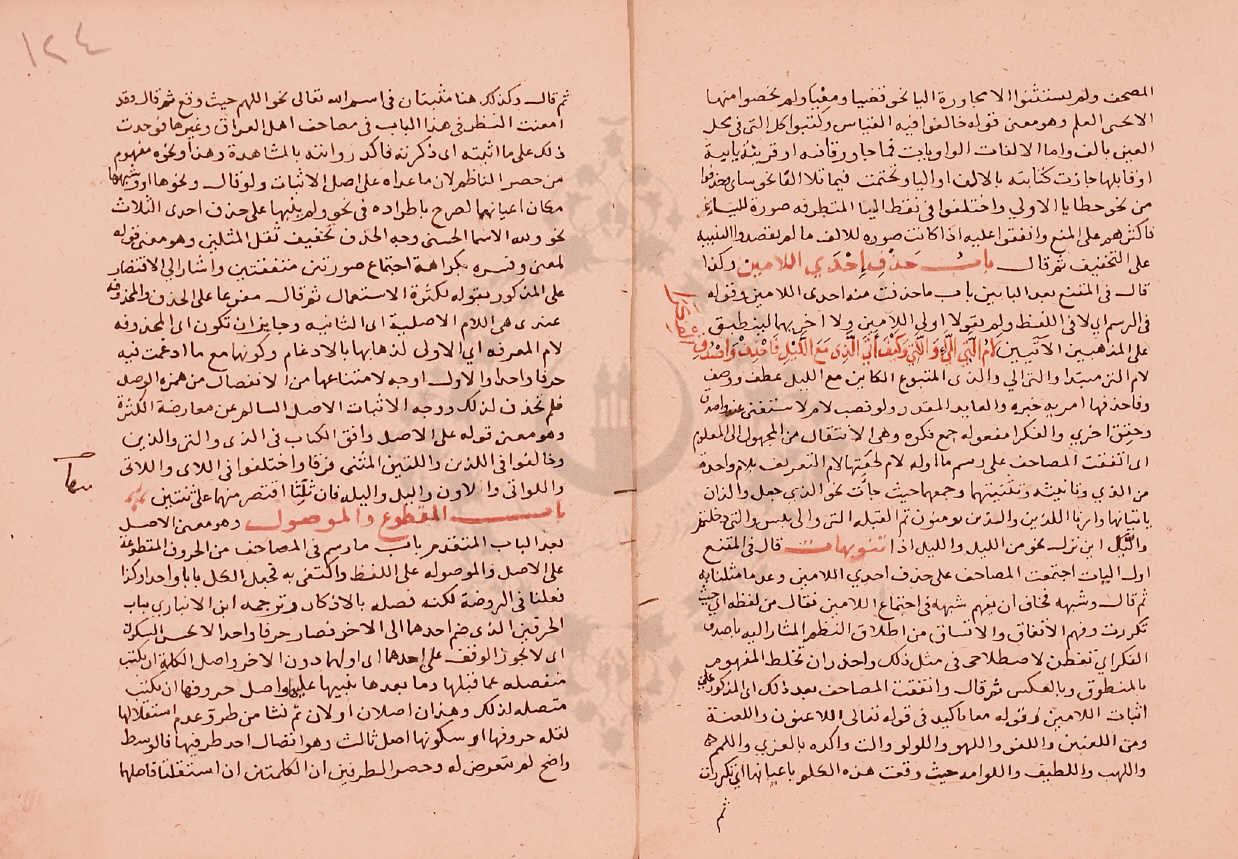 المصحف ولم يستثنوا الا مجاورة اليا نحو فضيا ومغيبا ولم يخصوا منها
الا يحيى العلم وهو معنى قوله خالفوا فيه القياس وكتبوا كل التي في محل
العين بالف واما الالفات الواويات فما جاور رقافه او قرينه يايية
او قابلها جازت كتابته بالالف او اليا ونحتمت فيما تلا الفا نحو سا
من نحو خطايا الاولي واختلفوا في نقط اليا المتطرفه صورة للياء
فاكثرهم على المنع واتفقوا عليه اذا كانت صورة للالف ما لم يقصدوا التنبيه
على التخفيف ثم قال باب حذف إحدى اللامين وكذا
قال في المقنع بعد البابين باب ما حذفت منه احدى اللامين وقوله
في الرسم اي لا في اللفظ ولم يقولا اولي اللامين ولا اخريهما لينطبق
على المذهبين الاتيين لام التي اللائي واللاتي وكيف أتى الذي مع الليل فاحذف واصدق
الفكرا
لام التي مبتدا والتي الي والذى المتبوع الكاين مع الليل عطف ووصف
فاحذفها امريه خبره والعايد المقدر ولو نصب لام لاستغنى عنه واصدق
وحقق اخري والفكرا مفعوله جمع فكره وهي الانتقال من المجهول الى المعلوم
اى اتفقت المصاحف على رسم ما اوله لام لحقتها لام التعريف بلام واحدة
من الذي وتانيثه وتثنيتهما وجمعهما حيث جات نحو الذي جعل والذان
ياتيانها وارنا اللذين والذين يومنون ثم القبله التي والى يئسن والتي دخلتم
والليل اين نزل نحو من الليل والليل اذا تنويهات قال في المقنع
اول اليات اجتمعت المصاحف على حذف احدي اللامين وعد ما مثلنا به
ثم قال وشبهه فخاف ان يفهم شبهه في اجتماع اللامين فقال من لفظه اي حيث
تكررت وفهم الاتفاق والاتساق من اطلاق النظم المشار اليه باصدق
الفكر اي تفطن لاصطلاحى في مثل ذلك واحذر ان تخلط المفهوم
بالمنطوق وبالعكس ثم قال واتفقت المصاحف بعد ذلك اى المذكور على
اثبات اللامين وقوله معا تاكيد في قوله تعالى اللاعنون واللعنة
ومن اللعنين واللغو واللهو واللولو والت واكده بالعزي واللمم
واللهب واللطيف واللوامه حيث وقعت هذه الكلم باعيانها اي تكررت
ثم
١٢٤
ثم قال وكذلك هنا مثبتان في اسم الله تعالى نحو اللهم حيث وقع ثم قال وقد
امعنت النظر في هذا الباب في مصاحف اهل العراق وغيرها فوجدت
ذلك على ما اثبته اى ذكرته فاكد روايته بالمشاهدة وهذا ونحوه مفهوم
من حصر الناظم لان ما عداه على اصل الاثبات ولو قال ونحوها او وشبهها
مكان اعيانها لصرح باطراده في نحو ولم ينبها على حذف احدى الثلاث
نحو ولله الاسما الحسنى وجه الحذف تخفيف ثقل المثلين وهو معنى قوله
لمعنى وفسره بكراهة اجتماع صورتين متفقتين واشار الى الاقتصار
على المذكور بقوله بكثرة الاستعمال ثم قال مفرعا على الحذف والمحذوفه
عندى هى اللام الاصلية اى الثانيه وجايز ان تكون اى المحذوفه
لام المعرفه اي الاولى لذهابها بالادغام وكونها مع ما ادغمت فيه
حرفا واحدا والاول اوجه لامتناعها من الانفصال من همزه الوصل
فلم تحذف لذلك ووجه الاثبات الاصل السالم عن معارضة الكثرة
وهو معنى قوله على الاصل وافق الكتاب في الذى والتي والذين
وخالفوا في اللذين واللتين المثنى فرقا واختلفوا في اللاى واللاتى
واللواتى والاون والليل والليله فان ثلثا اقتصر منها على ثنتين
باب المقطوع والموصول وهو معنى الاصل
بعد الباب المتقدم باب ما رسم في المصاحف من الحروف المقطوعة
على الاصل والموصوله على اللفظ واكتفى به فجعل الكل بابا واحدا وكذا
فعلنا في الروضة لكنه فصله بالاذكار وترجمه ابن الانبارى بباب
الحرفين الذى ضم احدهما الى الاخر فصار حرفا واحدا لا يحسن السكوت
اى لا يجوز الوقف على احدهما اى اولهما دون الاخر واصل الكلمة ان يكتب
منفصله عما قبلها وما بعدها تنبيها عليها واصل حروفها ان تكتب
متصله لذلك وهذان اصلان اولان ثم نشا من طروّ عدم استقلالها
لقله حروفها او سكونها اصل ثالث وهو اتصال احد طرفيها فالوسط
واضح لم يتعرض له وحصر الطرفين ان الكلمتين ان استقلتا فاصلها